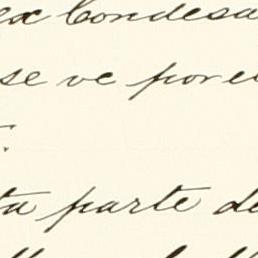 ex Condesa
se ve por e
ta parte de